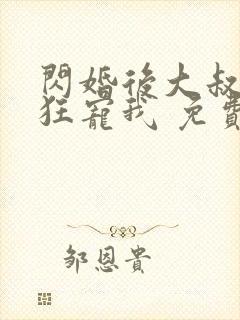 閃婚後大叔
狂寵我 免費
鄒恩貴